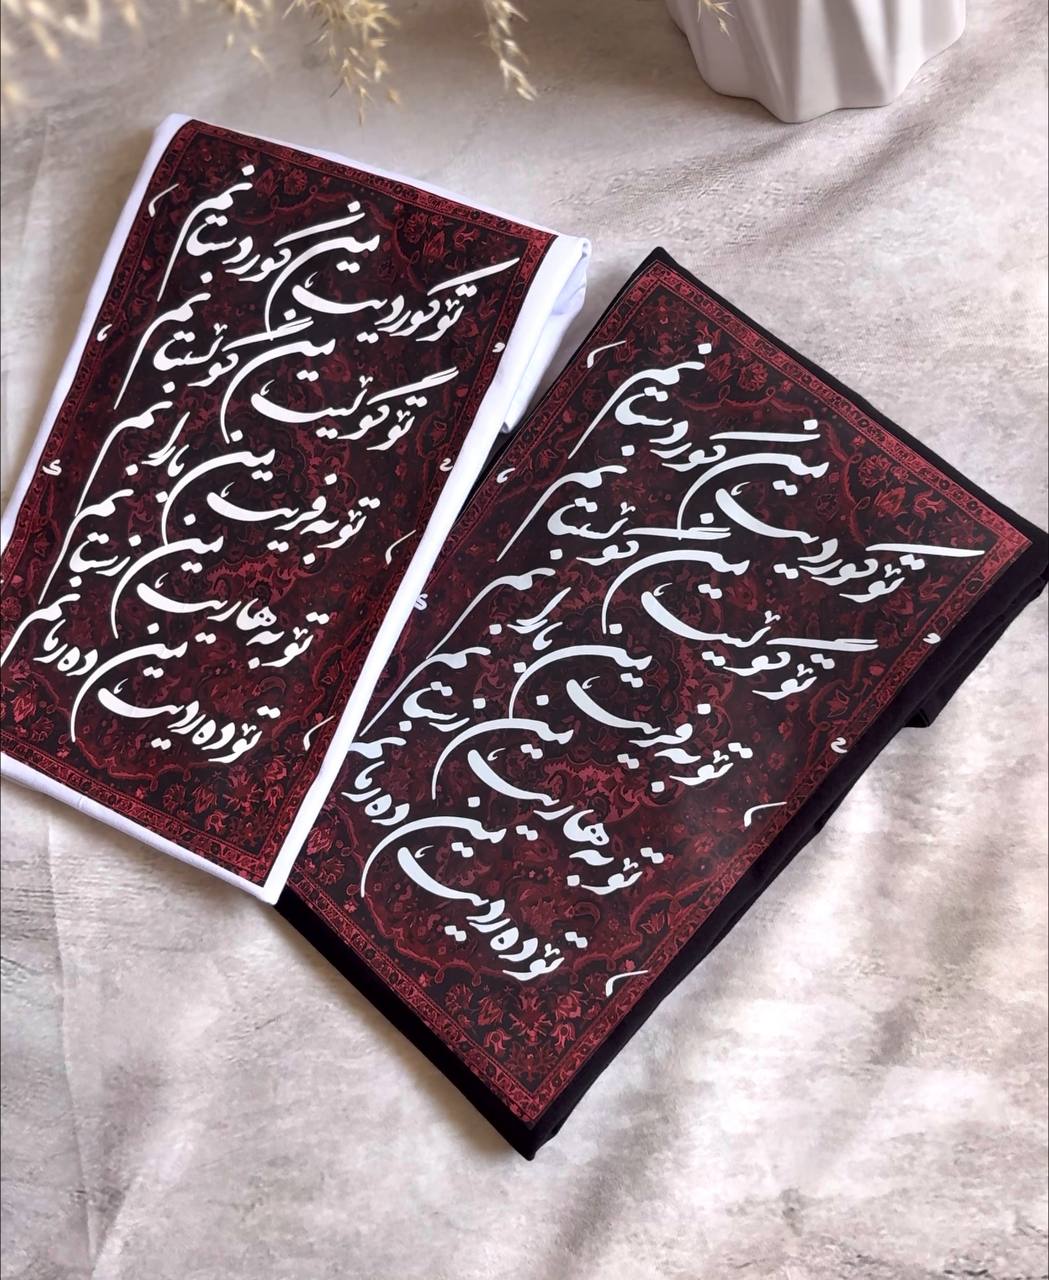 تۆ کوردیت من کوردستانم
تۆ گوڵیت من گوڵستانم
تۆ بەفریت من بارانم
تۆ بەهاریت من زستانم
تۆ دەردیت من دەرمانم
تۆ کوردیت من کوردستانم
تۆ گوڵیت من گوڵستانم
تۆ بەفریت من بارانم
تۆ بەهاریت من زستانم
تۆ دەردیت من دەرمانم